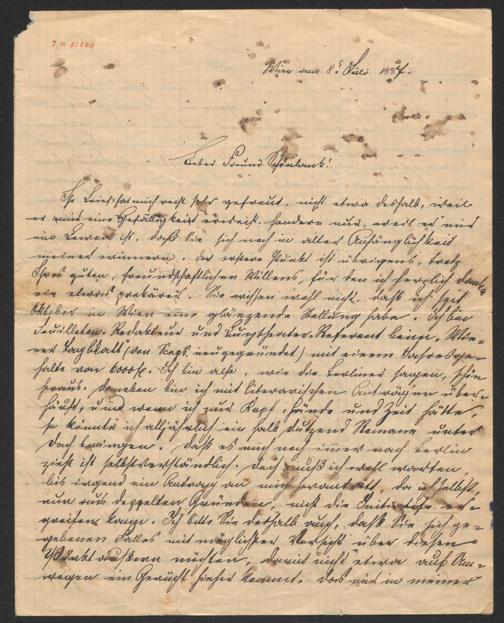 Wien am 8. Juli 1887.
Lieber Freund Schönlank!
Ihr Brief hat mich recht sehr gefreut, nicht etwa deshalb, weil
er mir eine Gefälligkeit erweist, sondern nur, weil er mir
ein Beweis ist, daß Sie sich noch in alter Anhänglichkeit
meiner erinnern. Der erstere Punkt ist übrigens, trotz
Ihres guten, freundschaftlichen Willens, für den ich herzlich danke
ein etwas prekärer. Sie wissen wohl nicht, daß ich seit
Oktober in Wien eine glänzende Stellung habe. Ich bin
Feuilleton-Redakteur und Burgtheater-Referent beim „Wie-
ner Tagblatt" (von Szeps neugegründet) mit einem Jahresge-
halte von 6000 fl. Ich bin also, wie die Berliner sagen, schön
heraus. Daneben bin ich mit literarischen Anträgen über-
häuft, und wenn ich nur Kopf, Hände und Zeit hätte,
so könnte ich alljährlich ein halb Dutzend Romane unter
Dach bringen. Daß es mich noch immer nach Berlin
zieht ist selbstverständlich. Doch muß ich wohl warten,
bis irgend ein Antrag an mich herantritt, da ich selbst,
nun aus doppelten Gründen, nicht die Initiative er-
greifen kann. Ich bitte Sie deshalb auch, daß Sie sich ge-
gebenen Falles mit möglichster Vorsicht über diesen
Punkt äußern möchten, damit nicht etwa auf Um-
wegen ein Gerücht hieher kommt, das mir in meiner